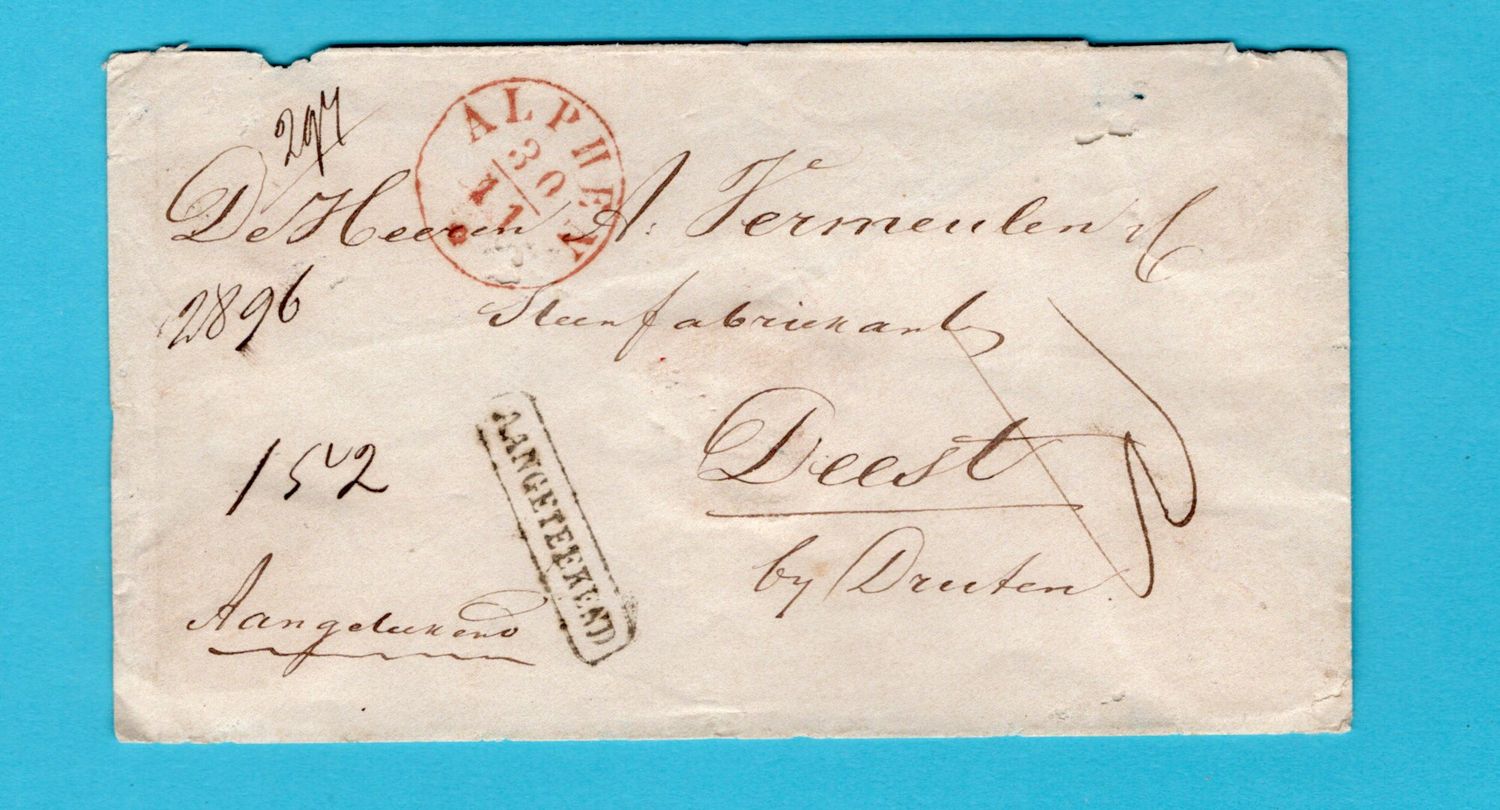 297
ALPHEN
30
11
De Heeren A: Vermeulen
2896
Steenfabriekanten
152
AANGETEEKEND
Deest
by Druten.
Aangeteekend